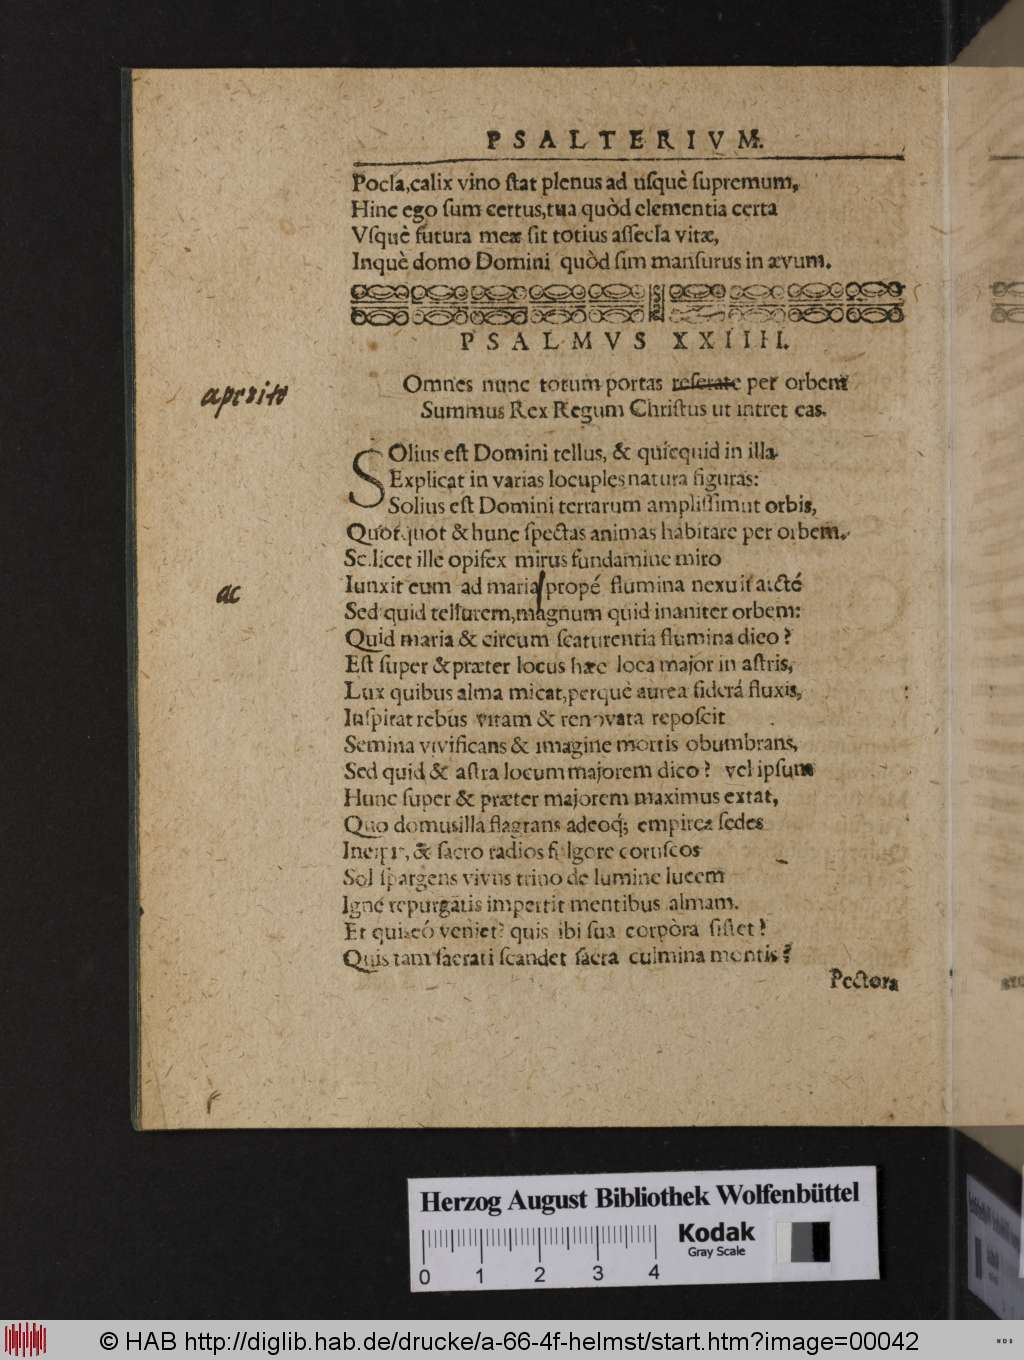 PSALTERIVM.
Pocla, calix vino ſtat plenus ad uſquè ſupremum,
Hinc ego ſum certus, tua quòd clementia certa
Vſquè futura meæ ſit totius aſſecla vitæ,
Inquè domo Domini quòd ſim manſurus in ævum.
PSALMVS XXIIII.
Omnes nunc totum portas reſerate per orbem
aperite
Summus Rex Regum Chriſtus ut intret eas.
SOlius eſt Domini tellus, & quicquid in illa
Explicat in varias locuples natura figuras:
Solius eſt Domini terrarum ampliſſimut orbis,
Quot quot & hunc ſpectas animas habitare per orbem.
Scilicet ille opifex mirus fundamine miro
Iunxit eum ad maria propé flumina nexuit arcté
ac
Sed quid tellurem, magnum quid inaniter orbem:
Quid maria & circum ſcaturentia flumina dico?
Eſt ſuper & præter locus hæc loca major in aſtris,
Lux quibus alma micat, perquè aurea ſiderá fluxis,
Inſpirat rebus vitam & renovata repoſcit
Semina vivificans & imagine mortis obumbrans,
Sed quid & aſtra locum majorem dico? vel ipſum
Hunc ſuper & præter majorem maximus extat,
Quo domus illa flagrans adeoq; empirea ſedes
& ſacro radios fulgore coruſcos
Sol ſpargens vivus trino de lumine lucem
Igné repurgatis impertit mentibus almam.
Et quis eó veniet? quis ibi ſua corpòra ſiſtet?
Quis tam ſacrati ſcandet ſacra culmina montis?
Pectora
Herzog August Bibliothek Wolfenbüttel
0 1 2 3 4
Kodak
Gray Scale
© HAB http://diglib.hab.de/drucke/a-66-4f-helmst/start.htm?image=00042